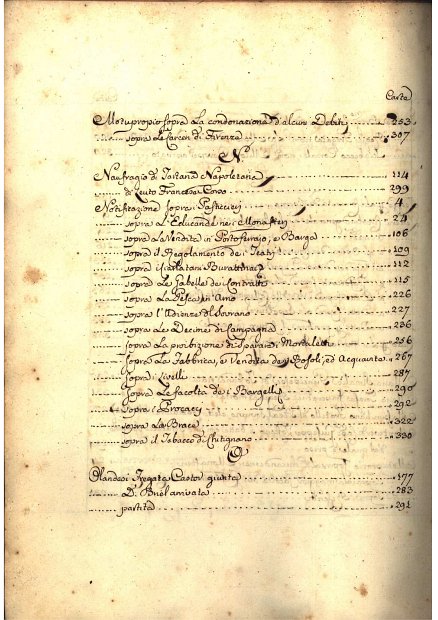 Carte
Motupropio sopra La condonazione d'alcuni Debiti 253
sopra Le Carceri di Firenze 307
N
Naufragio di Tartana Napoletana 114
di Leuto Francese Corso 299
Notificazione sopra i Pasticcieri 4
sopra L'Educande nei Monasteri 24
sopra La Vendita in Portoferajo, e Barga 106
sopra il Regolamento dei Teatri 109
sopra i Ciarlatani Burattinai 112
sopra Le Gabelle dei Contratti 115
sopra La Pesca in Arno 226
sopra l'Udienze del Sovrano 227
sopra Le Decime di Campagna 236
sopra La proibizione di Sparare i Mortaletti 256
sopra La Fabbrica, e Vendita dei Rosolj, ed Acquavita 267
sopra i Livelli 287
sopra Le facoltà dei Bargelli 290
sopra i Procacci 292
sopra La Brace 322
sopra il Tabacco di Chitignano 330
O
Olandesi Fregate Castor giunta 177
D. Briel arrivata 283
partita 291